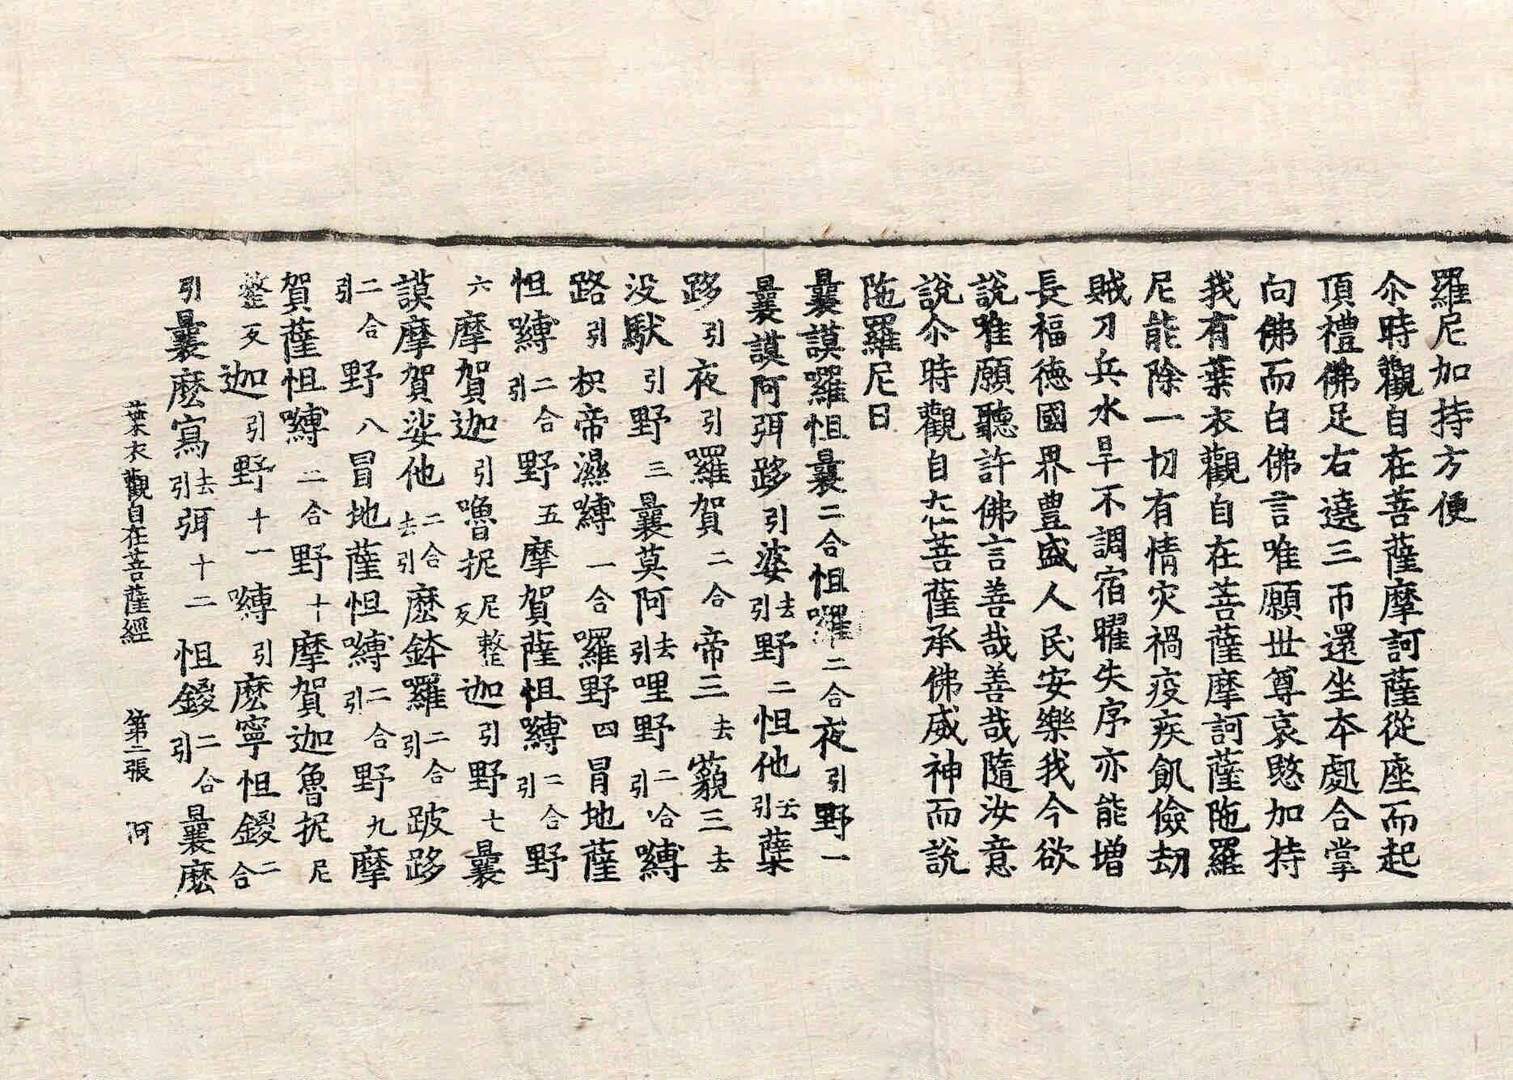 羅尼加持方便
尒時觀自在菩薩摩訶薩從座而起
頂禮佛足右遶三帀還坐本處合掌
向佛而白佛言唯願世尊哀愍加持
我有葉衣觀自在菩薩摩訶薩陁羅
尼能除一切有情灾禍疫疾飢儉劫
賊刀兵水旱不調宿曜失序亦能增
長福德國界豊盛人民安樂我今欲
說唯願聽許佛言善哉善哉隨汝意
說尒時觀自在菩薩承佛威神而說
陁羅尼曰
曩謨囉怛曩二合怛囉二合夜引野一
曩謨阿弭跢引婆去引野二怛他去引蘖
跢引夜引囉賀二合帝三去藐三去
没馱引野三曩莫阿去引哩野二合引嚩
路引枳帝濕嚩一合囉野四冒地薩
怛嚩二合引野五摩賀薩怛嚩二合引野
六摩賀迦引嚕抳尼整反迦引野七曩
謨摩賀娑他二合去引麽鉢囉二合引跛跢
二合引野八冒地薩怛嚩二合引野九摩
賀薩怛嚩二合野十摩賀迦魯抳尼
整反迦引野十一嚩引麽寧怛鑁二合
引曩麽寫去引弭十二怛鑁二合引曩麽
葉衣觀自在菩薩經 第二張 河